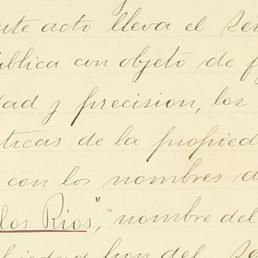 nte acto lleva el se
ública con objeto de f
dad y precision, los
ticas de la propied
con los nombres d
los Rios", nombre del
piedad hon del se